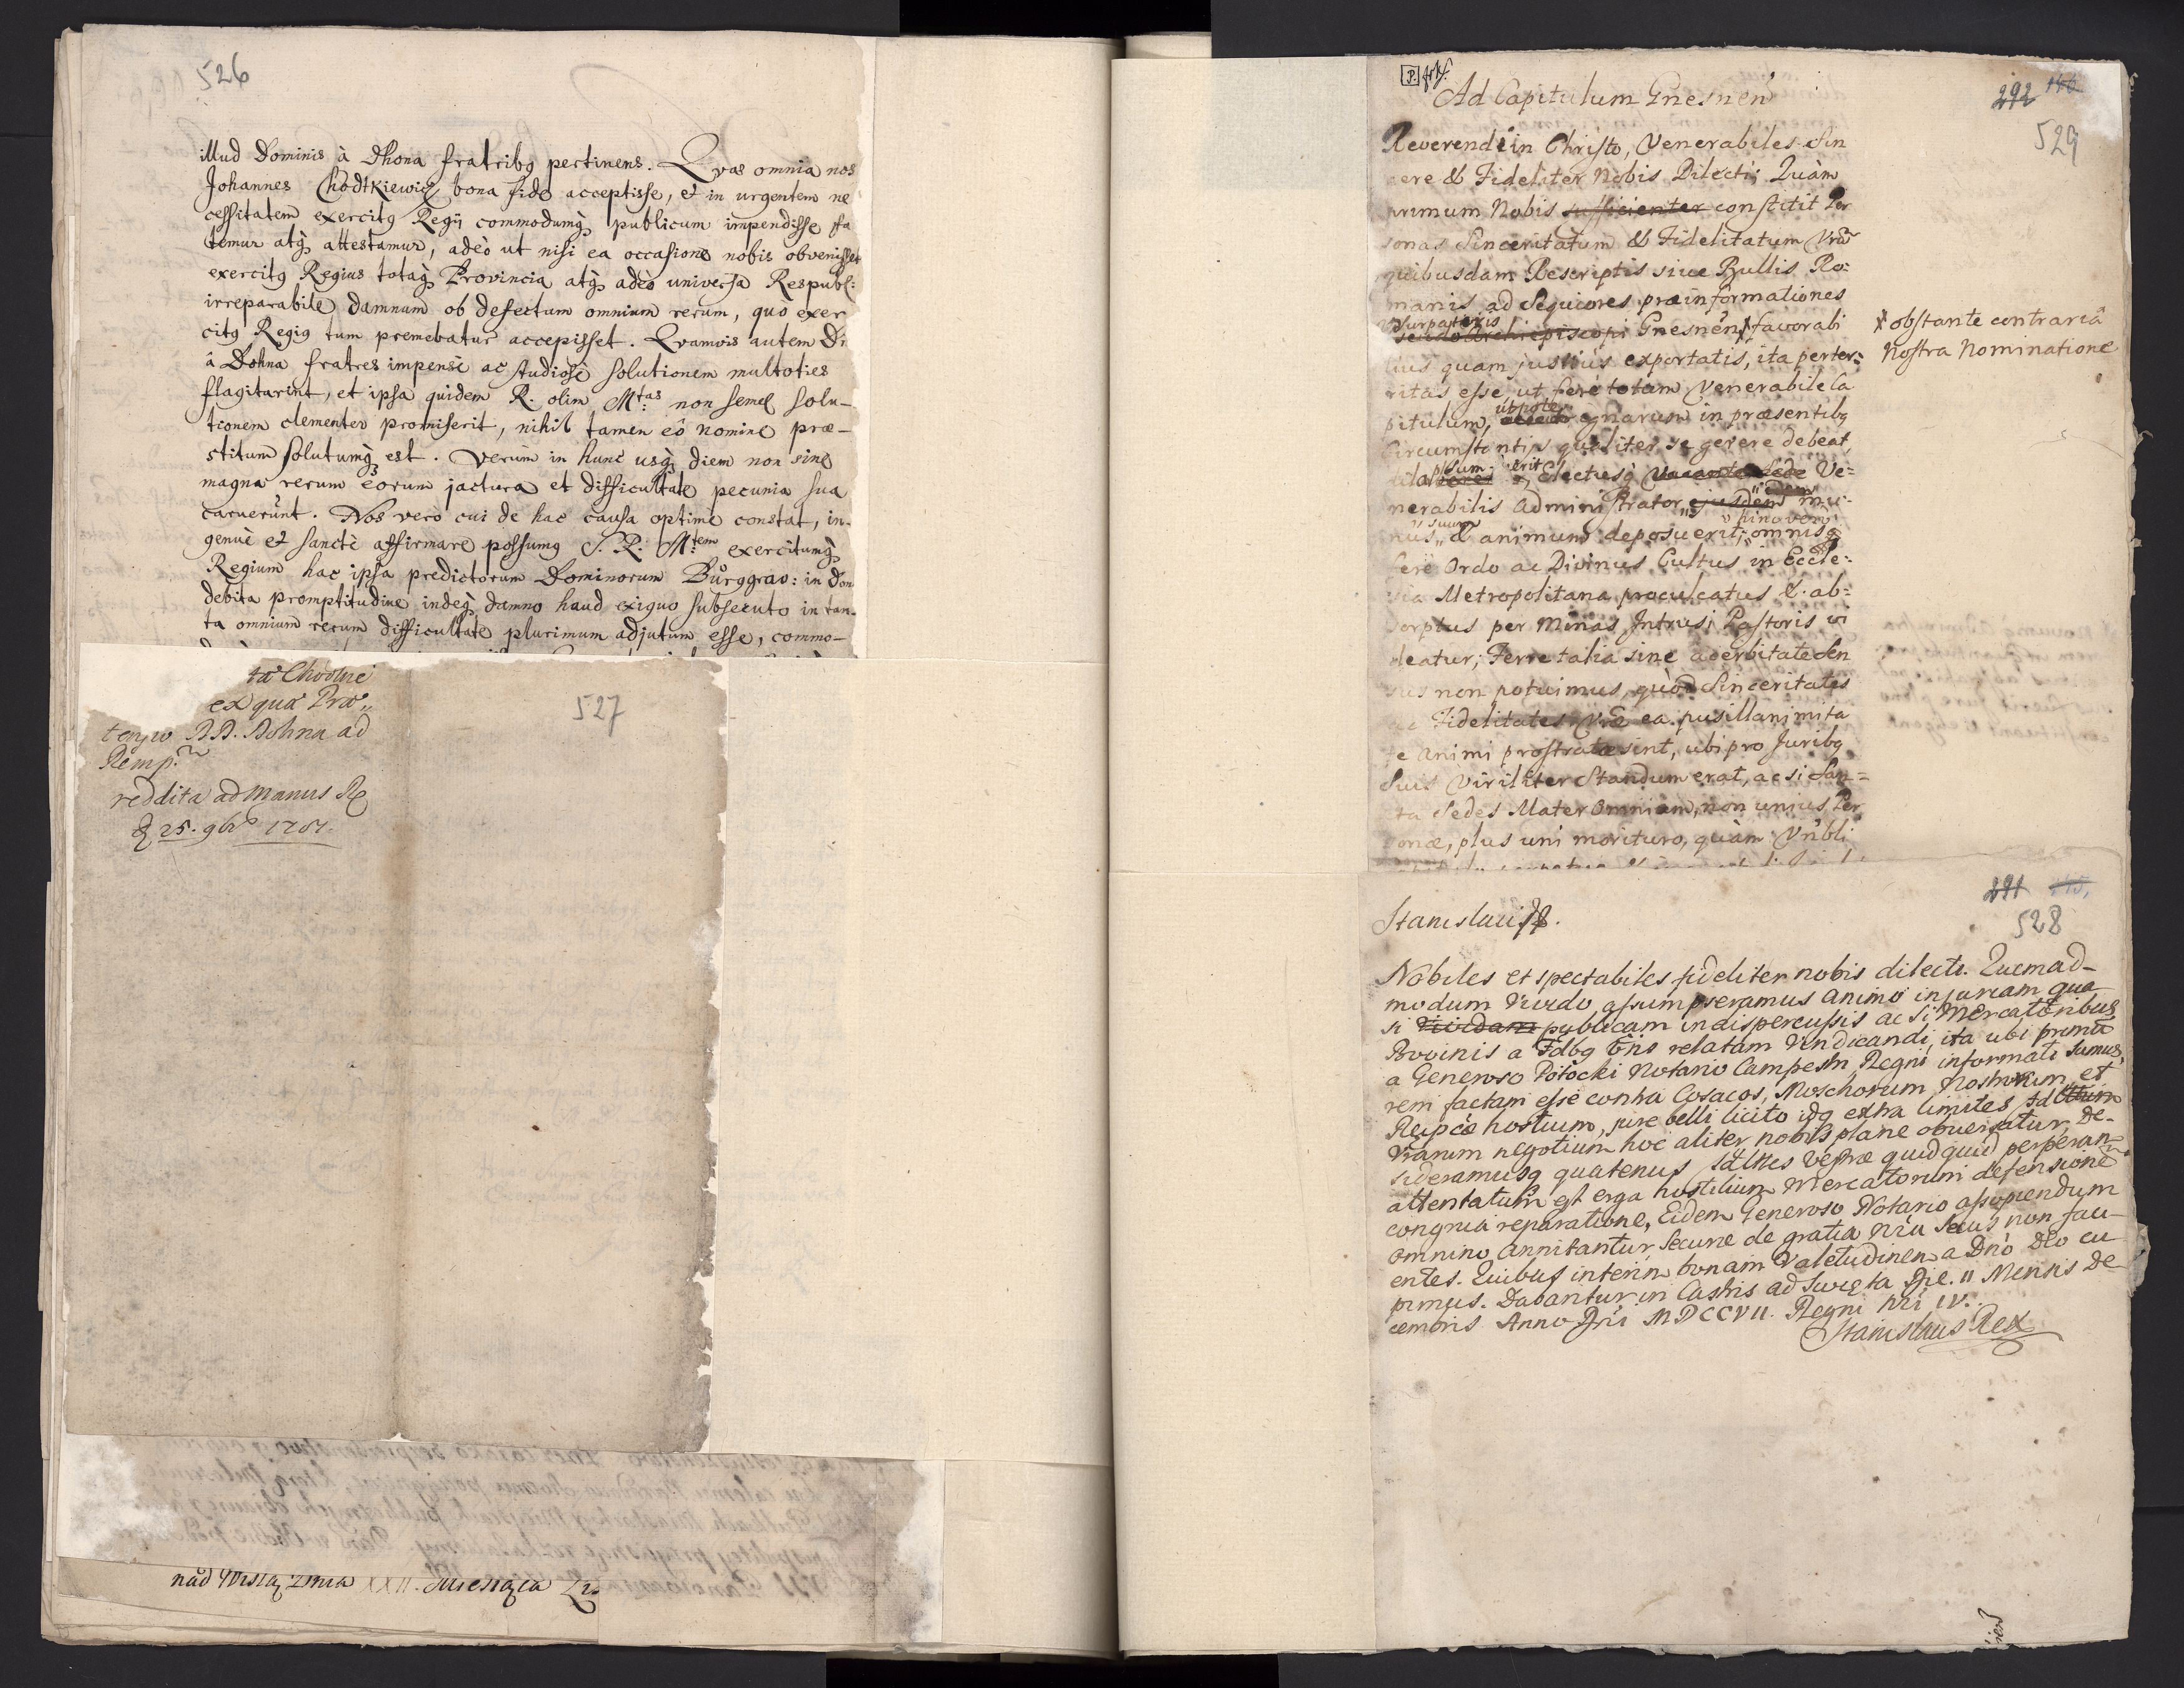 526
illud Dominis à Dhona fratribq pertinens. Quas omnia nos
Johannes Chodtkiewicz bona fide acceptisse, et in urgentem ne
cessitatem exercitq Regij commodumq publicum impendisse fa
temur atq attestamur, adeò ut nisi ea occasione nobis obvenisset
exercitq Regius totaq Provincia atq adeò universa Respubl:
irreparabile damnum ob defectum omnium rerum, quò exer
citq Regiq tum premebatur accepisset. Quamvis autem D:
à Dohna fratres impensè ac studiosè solutionem multoties
flagitarint, et ipsa quidem R. olim M:tas non semel solu-
tionem clementer promiserit, nihil tamen eô nomine præ-
stitum solutumq est. Verùm in hunc usq diem non sine
magna rerum eorum jactura et difficultate pecunia sua
caruerunt. Nos vero cui de hac causa optimè constat, in-
genuè et sanctè affirmare possumq S. R. M:tem exercitumq
Regium hac ipsa predictorum Dominorum Burggrav: in Don
debita promptitudine indeq damno haud exiguo subsecuto in tan-
ta omnium rerum difficultate plurimum adjutum esse, commo-
527
ex qua Præ„
tensio DD. Dohna ad
Remp.
reddita ad Manus
25. 9br
nad Wisłą Dnia XXII. Miesiąca
Ad Capitulum Gnesnen
292 146
529
Reverendi in Christo, Venerabiles Sin
cere & Fideliter Nobis Dilecti; Quàm
primum Nobis sufficienter constitit Per
sonas Sinceritatum & Fidelitatum Vrã
quibusdam Rescriptis sive Bullis Ro:
manis ad Sequiores præinformationes
Usurpatoris
Pseudo Archiepiscopi Gnesnen favorabi
obstante contrariâ
Nostra Nominatione
lius quam justius exportatis, ita perter:
ritas esse, ut ferè totam Venerabile Ca
utpote
pitulum, ignarum in præsentibq
Circumstantijs qualiter se gerere debeat,
Electusq Vacante Sede Ve=
nerabilis Administrator ejusdem mu:
nus & animum deposuerit, omnisq
ferè Ordo ac Divinus Cultus in Eccle:
sia Metropolitana proculcatus & ab=
sorptus per Minas Intrusi Pastoris vi
deatur; Ferre talia sine acerbitate Sen
sus non potuimus, quòd Sinceritates
ac Fidelitates Vræ ea pusillanimita
te animi prostratæ sint, ubi pro Juribq
Suis Viriliter Standum erat, ac si San=
cta Sedes Mater Omnium, non unius Per
sonæ, plus uni morituro, quàm
291 145
528
Stanislaus
Nobiles et spectabiles fideliter nobis dilecti. Quemad-
modum Vivido assumpseramus animo injuriam qua
si Vividam publicam indispercussis ac si Mercatoribus
a Fdbq relatam Vindicandi, ita ubi primu
a Generoso Potocki Notario Campestri Regni informati sumus,
rem factam esse contra Cosacos, Moschorum Nostrorum et
Reipcæ hostium, jure belli licito idq extra limites
Vrarum negotium hoc aliter nobis plane obversatur. De-
sideramusq quatenus Vestræ quidquid perperam
attentatum est erga hostilium Mercatorum defensione
congrua reparatione, Eidem Generoso Notario assopiendum
omnino annitantur, Secure de gratia Nra Secus non faci-
entes. Quibus interim bonam Valetudinem a Dno Deo cu
pimus. Dabantur in Castris ad Die. II Mensis De
cembris Anno Dni MDCCVII. Regni Nri IV.
Stanislaus Rex